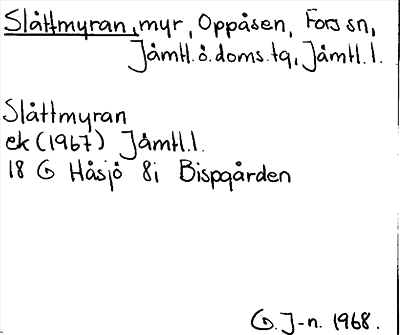 Slåttmyran, myr, Oppåsen, Fors sn,
Jämtl. ö. doms. tg, Jämtl. l.
Slåttmyran
ek (1967) Jämtl. l.
18 G Håsjö 8i Bispgården
G. J-n. 1968.